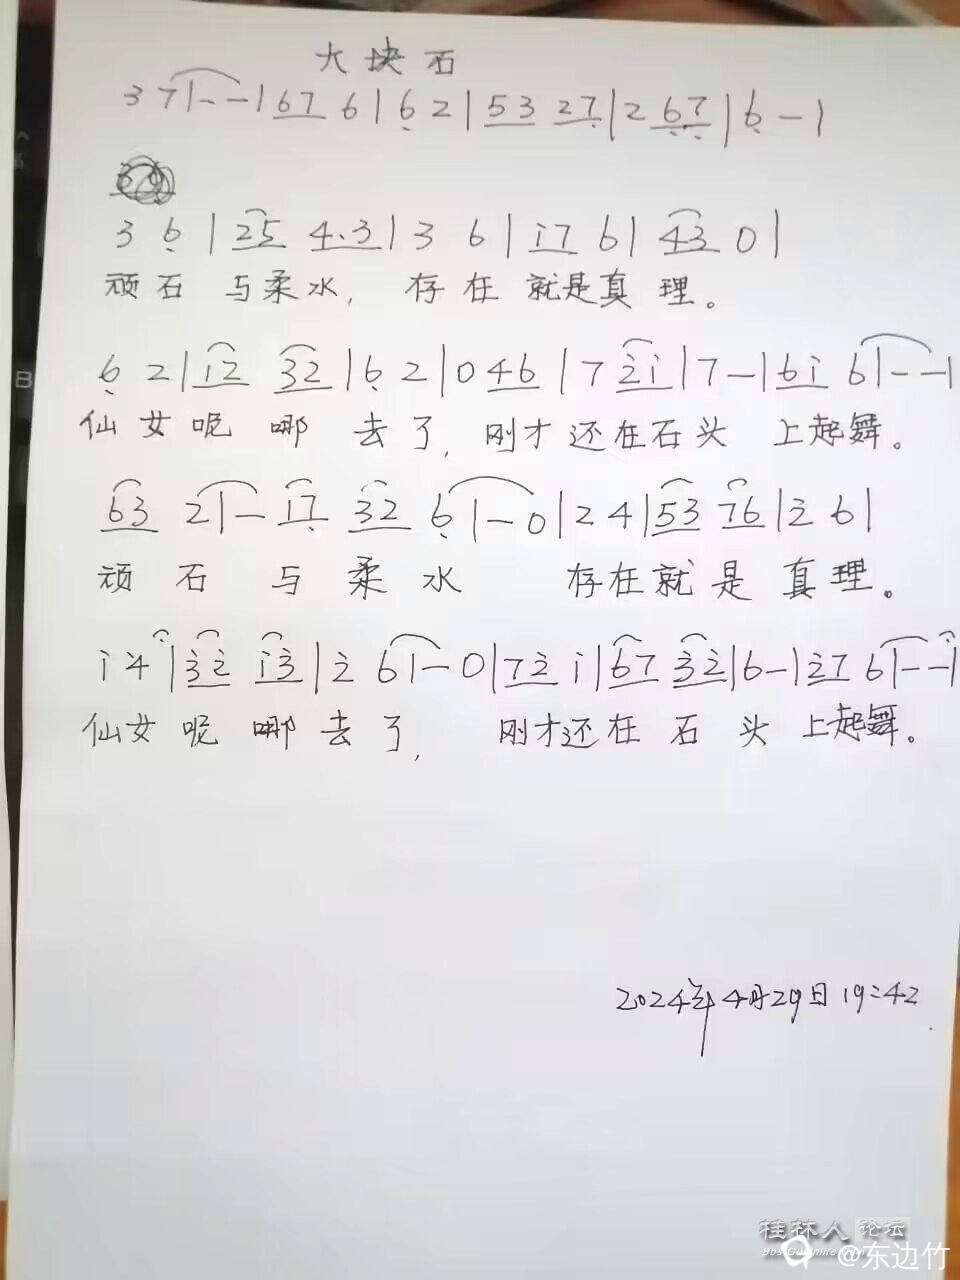 大块石
3 7 | - - | 67 6 | 6̣ 2 | 53 27̣ | 2 6̣7̣ | 6̣ - |
3 6̣ | 25 4.3 | 3 6 | i7 6 | 43 0 |
顽石 与柔水, 存在 就是真理。
6̣ 2 | i2 32 | 6̣ 2 | 0 46 | 7 2̇i | 7 - | 6i 6 | - - |
仙女呢 哪 去了, 刚才还在石头 上起舞。
63 2 | - 17̣ 32 6̣ | - 0 | 2 4 | 53 76 | 2̇ 6 |
顽石与柔水 存在就是真理。
i 4 | 3̇2̇ i3̇ | 2̇ 6 | - 0 | 72̇ i | 67 3̇2̇ | 6 - | 2̇7 6 | - - |
仙女呢 哪去了, 刚才还在石头上起舞。
2024年4月29日19:42
桂林人 论坛
@东边竹